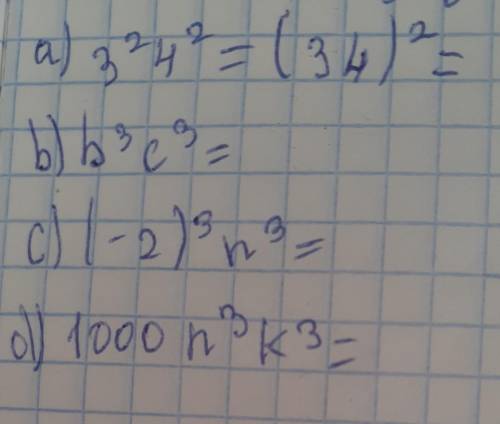 a) 3²4² = (34)² =
b) b³c³ =
c) (-2)³n³ =
d) 1000n³k³ =